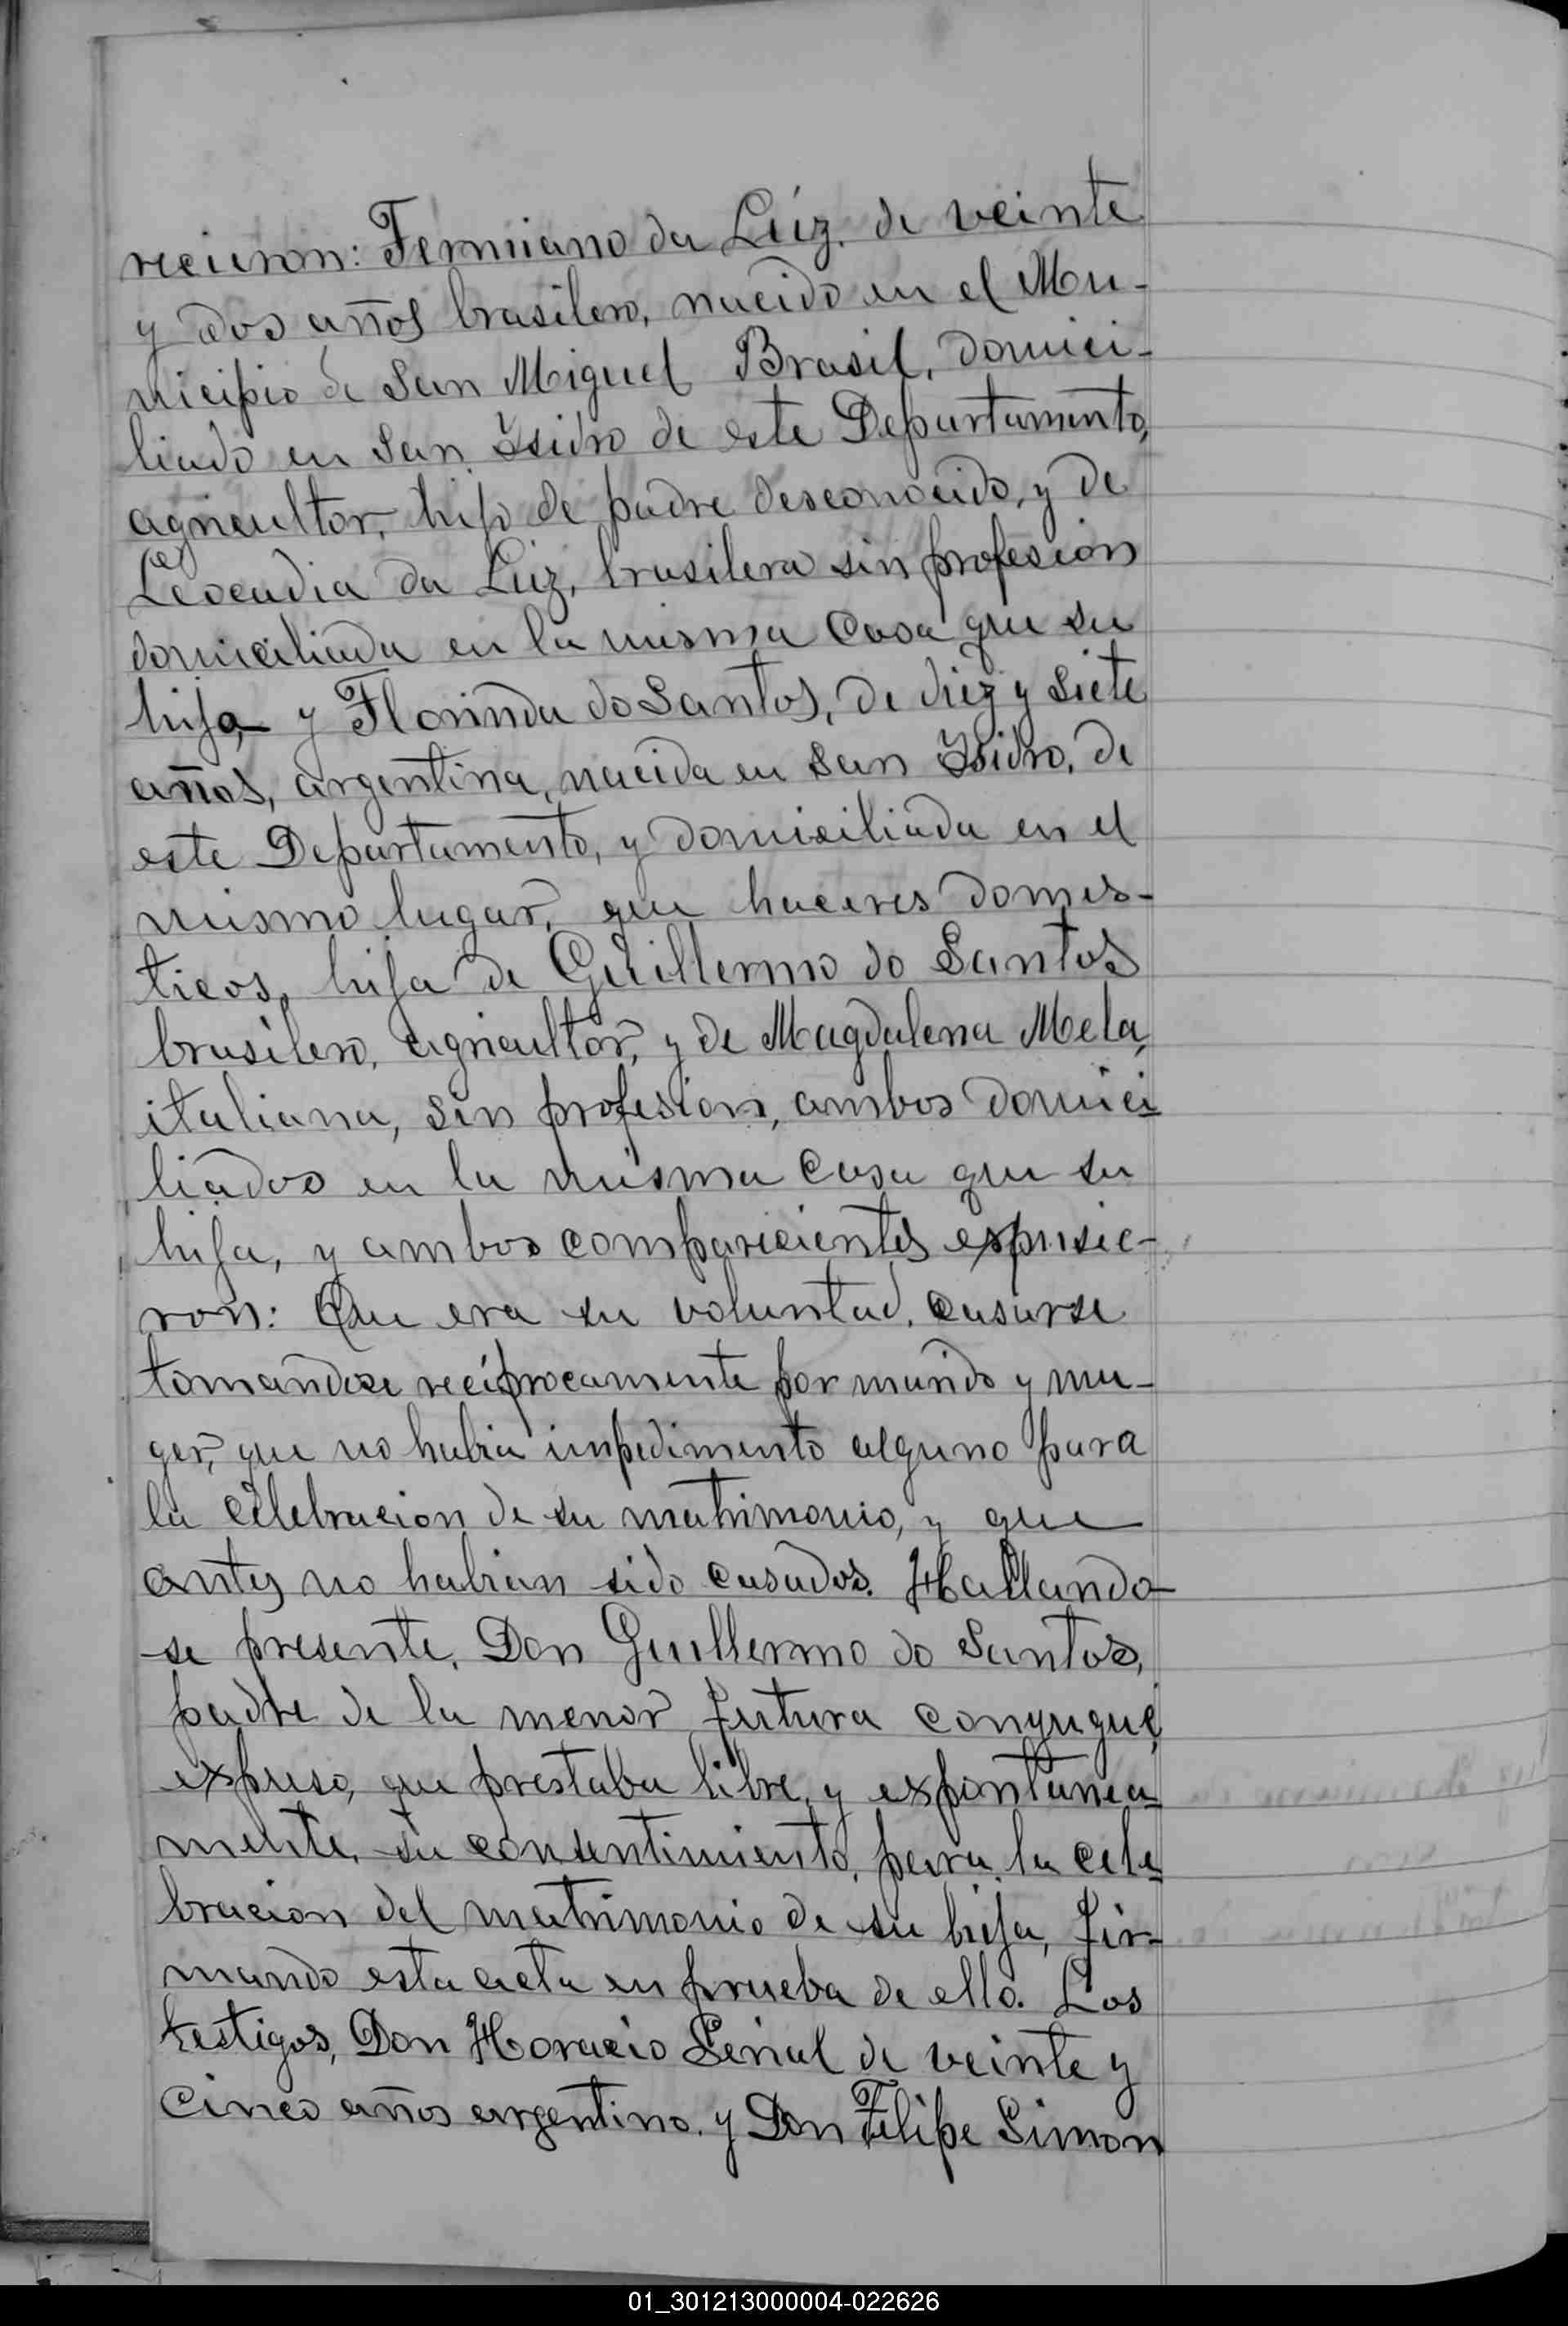 recieron: Fermiano da Luiz. de veinte
y dos años brasilero, nacido en el Mu-
nicipio de San Miguel Brasil, domici-
liado en San Isidro de este Departamento,
agricultor, hijo de padre desconocido, y de
Leocadia da Luiz, brasilera sin profesion
domiciliada en la misma casa que su
hijo, y Florinda do Santos, de diez y siete
años, argentina, nacida en San Isidro, de
este Departamento, y domiciliada en el
mismo lugar, que haceres domes-
ticos, hija de Guillermo do Santos
brasilero, agricultor, y de Magdalena Mela,
italiana, sin profesion, ambos domici-
liados en la misma casa que su
hija, y ambos comparecientes espusie-
ron: Que era su voluntad, casarse
tomandose recíprocamente por marido y mu-
ger, que no habia impedimento alguno para
la celebracion de su matrimonio, y que
antes no habian sido casados. Hallando-
se presente, Don Guillermo do Santos,
padre de la menor futura conyugue,
expuso, que prestaba libre, y espontanea-
mente, su consentimiento, para la cele-
bracion del matrimonio de su hija, fir-
mando esta acta en prueba de ello. Los
testigos, Don Horacio Serial de veinte y
cinco años argentino, y Don Felipe Simon
01_301213000004-022626